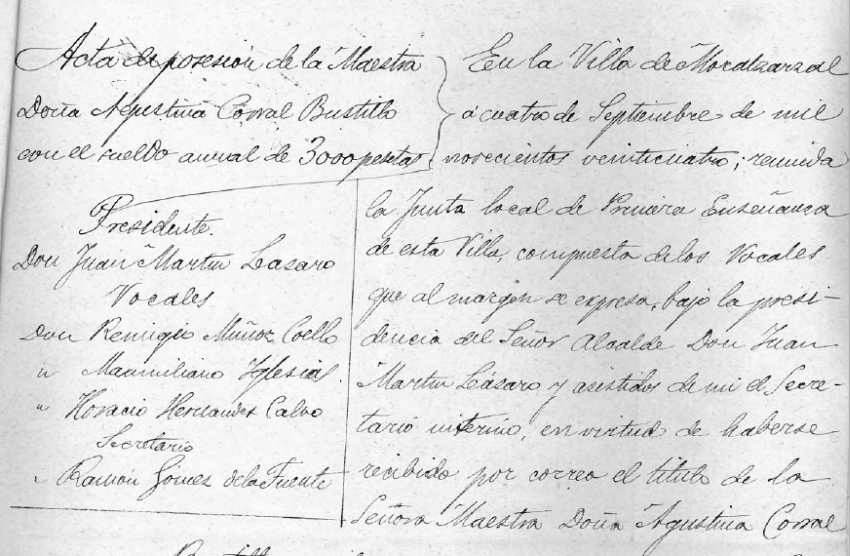 Acta de posesion de la Maestra
Doña Agustina Corral Bustillo
con el sueldo anual de 3000 pesetas
Presidente.
Don Juan Martin Lasaro
Vocales
Don Remigio Muñoz Coello
" Maximiliano Yglesias.
" Horacio Hernandez Calvo
Secretario
" Ramón Gomes de la Fuente
En la Villa de Moralzarzal
á cuatro de Septiembre de mil
novecientos veinticuatro; reunida
la Junta local de Primera Enseñanza
de esta Villa, compuesta de los Vocales
que al margen se expresa, bajo la presi-
dencia del Señor Alcalde Don Juan
Martin Lásaro y asistidos de mi el Secre-
tario interino, en virtud de haberse
recibido por correo el titulo de la
Señora Maestra Doña Agustina Corral